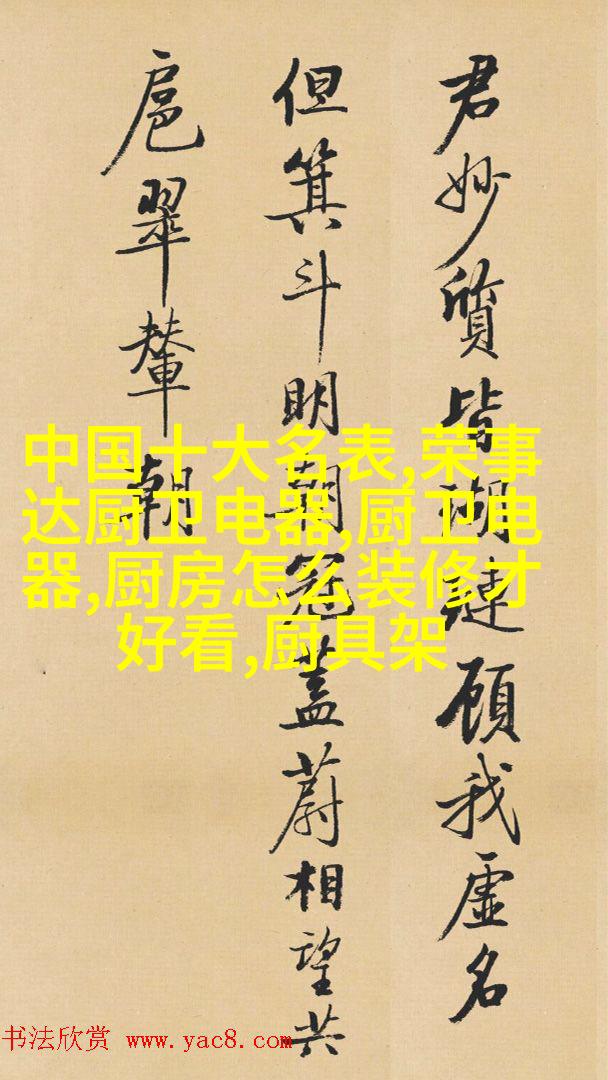 君妙質皆瑚璉顧我虛名
但箕斗明朝冠蓋蔚相望共
扈翠輦朝
中国十大名表,荣事
达厨卫电器,厨卫电
器,厨房怎么装修才
好看,厨具架
书法欣赏 www.yac8.com